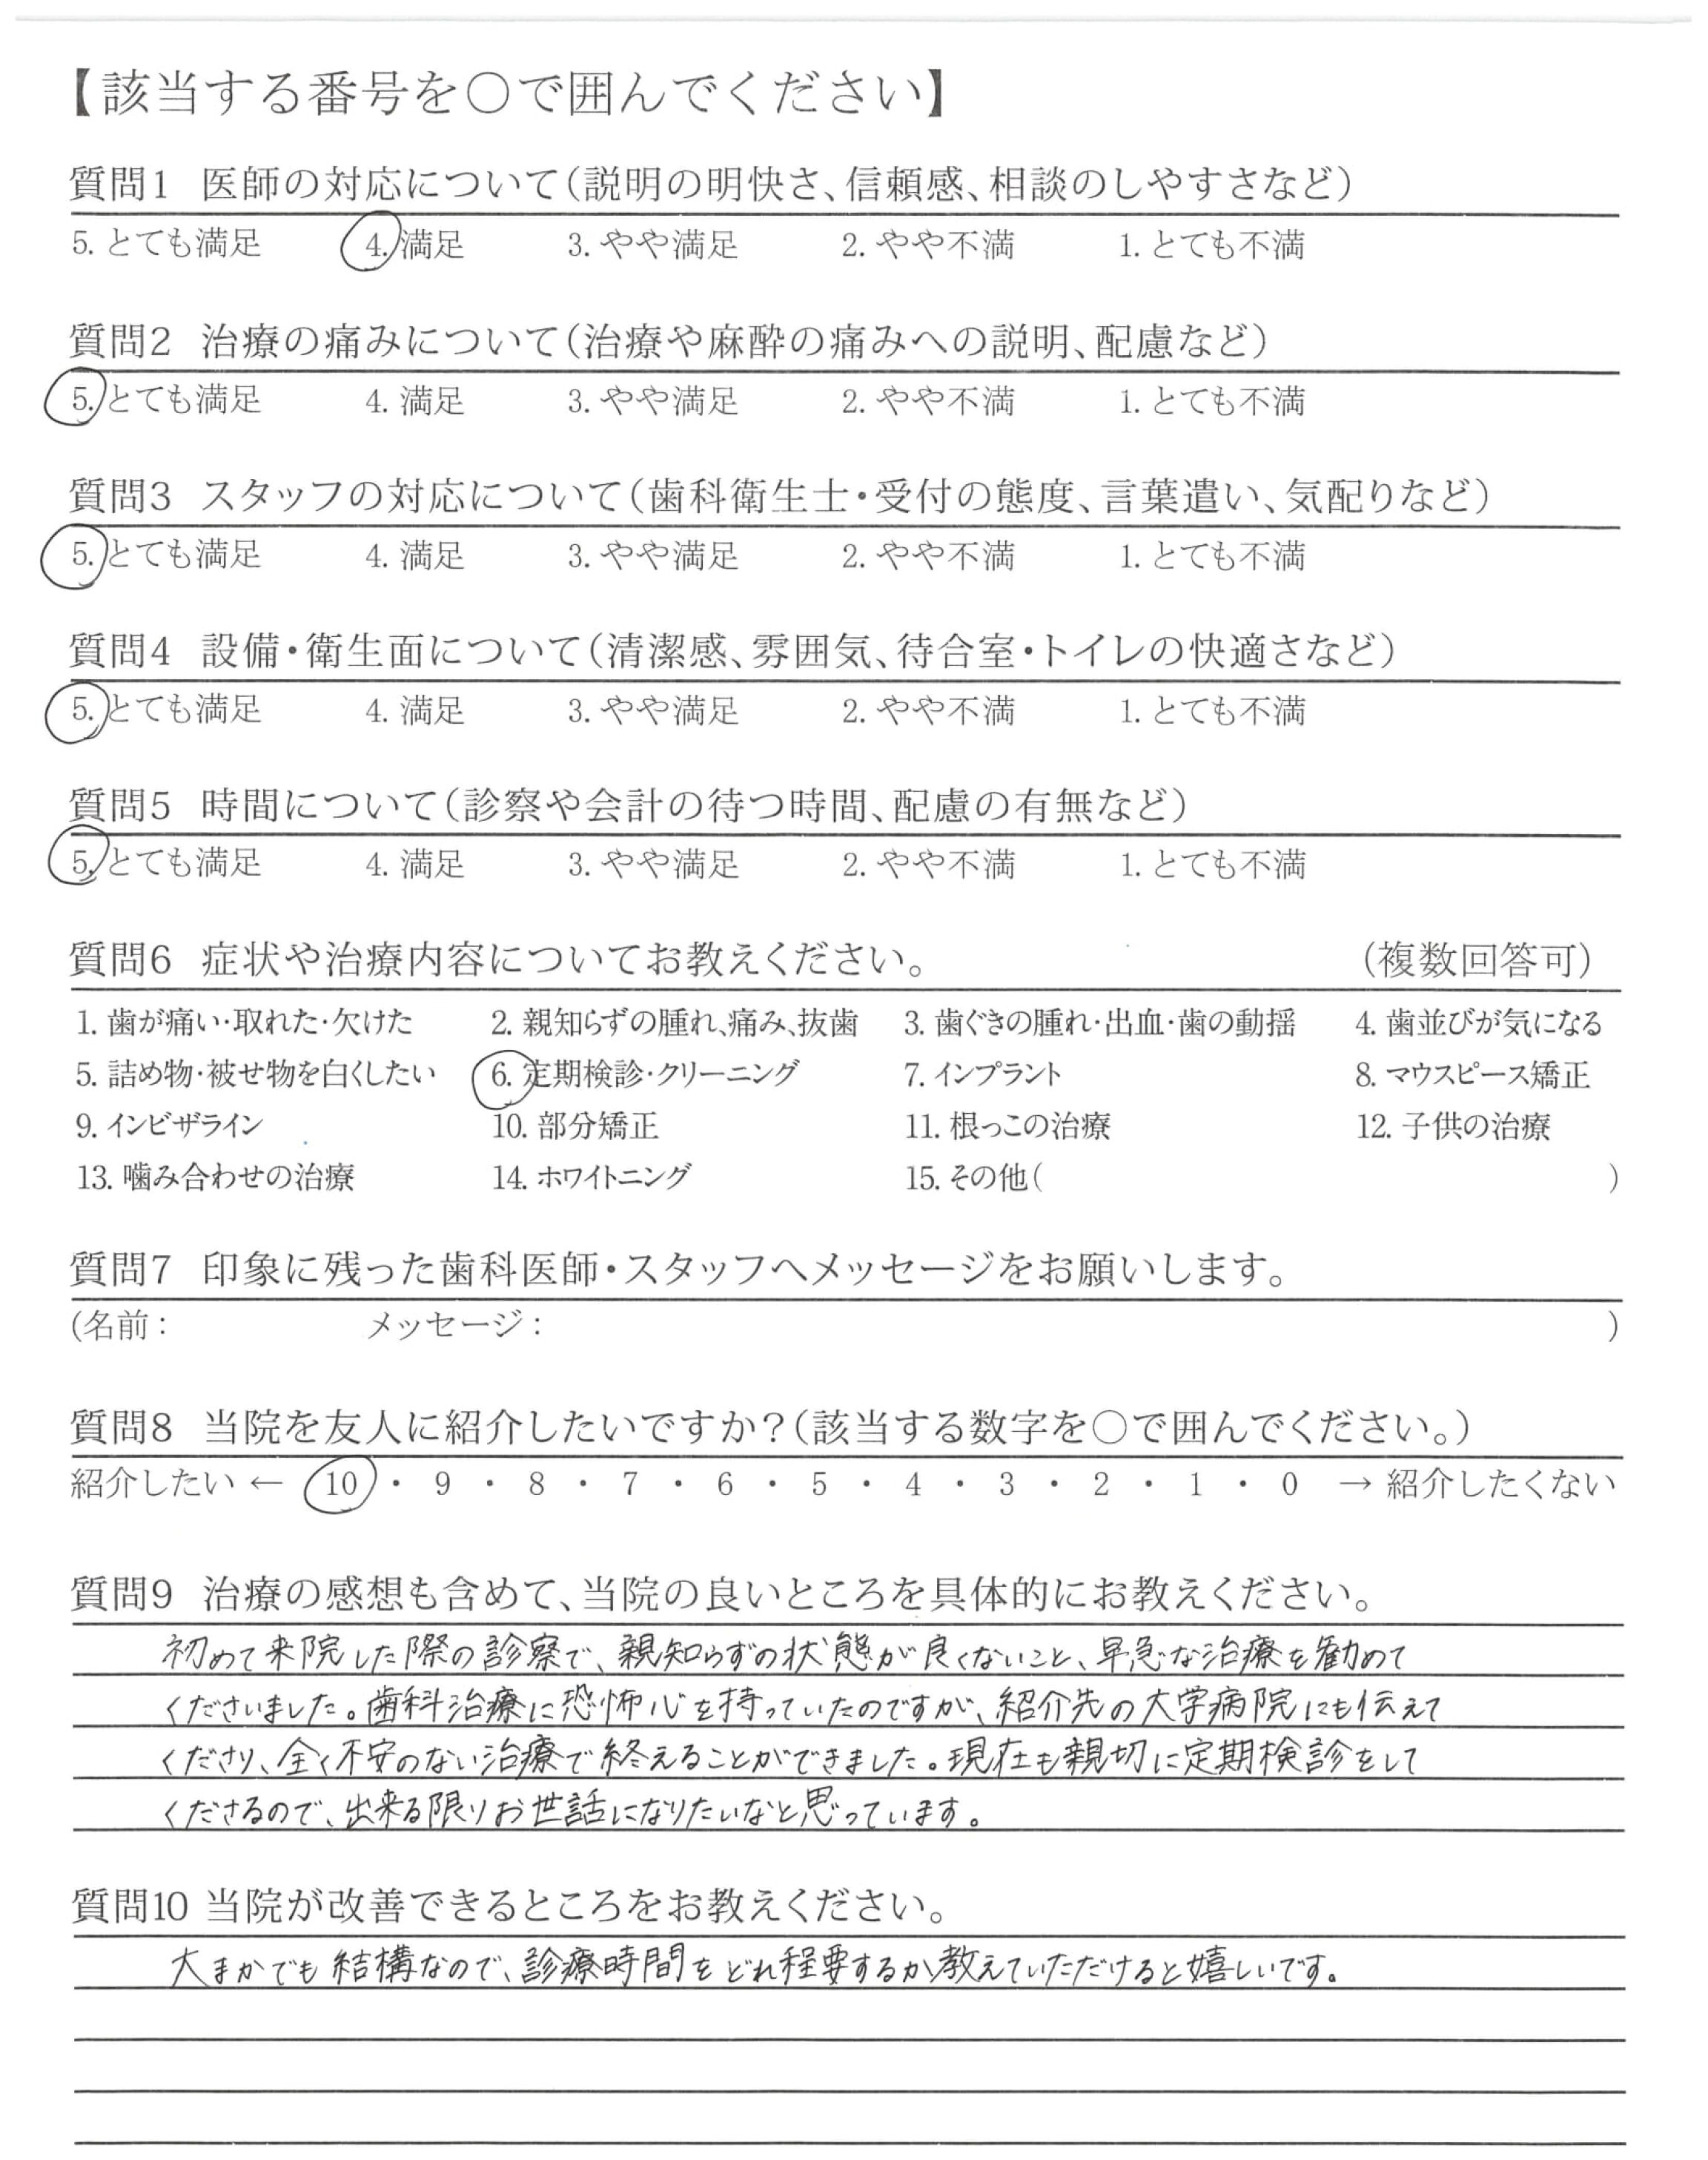 【該当する番号を○で囲んでください】
質問1 医師の対応について(説明の明快さ、信頼感、相談のしやすさなど)
5. とても満足 4. 満足 3. やや満足 2. やや不満 1. とても不満
質問2 治療の痛みについて(治療や麻酔の痛みへの説明、配慮など)
5. とても満足 4. 満足 3. やや満足 2. やや不満 1. とても不満
質問3 スタッフの対応について(歯科衛生士・受付の態度、言葉遣い、気配りなど)
5. とても満足 4. 満足 3. やや満足 2. やや不満 1. とても不満
質問4 設備・衛生面について(清潔感、雰囲気、待合室・トイレの快適さなど)
5. とても満足 4. 満足 3. やや満足 2. やや不満 1. とても不満
質問5 時間について(診察や会計の待つ時間、配慮の有無など)
5. とても満足 4. 満足 3. やや満足 2. やや不満 1. とても不満
質問6 症状や治療内容についてお教えください。 (複数回答可)
1. 歯が痛い・取れた・欠けた 2. 親知らずの腫れ、痛み、抜歯 3. 歯ぐきの腫れ・出血・歯の動揺 4. 歯並びが気になる
5. 詰め物・被せ物を白くしたい 6. 定期検診・クリーニング 7. インプラント 8. マウスピース矯正
9. インビザライン 10. 部分矯正 11. 根っこの治療 12. 子供の治療
13. 噛み合わせの治療 14. ホワイトニング 15. その他( )
質問7 印象に残った歯科医師・スタッフへメッセージをお願いします。
(名前: メッセージ: )
質問8 当院を友人に紹介したいですか?(該当する数字を○で囲んでください。)
紹介したい ← 10 ・ 9 ・ 8 ・ 7 ・ 6 ・ 5 ・ 4 ・ 3 ・ 2 ・ 1 ・ 0 → 紹介したくない
質問9 治療の感想も含めて、当院の良いところを具体的にお教えください。
初めて来院した際の診察で、親知らずの状態が良くないこと、早急な治療を勧めて
くださいました。歯科治療に恐怖心を持っていたのですが、紹介先の大学病院にも伝えて
くださり、全く不安のない治療で終えることができました。現在も親切に定期検診をして
くださるので、出来る限りお世話になりたいなと思っています。
質問10 当院が改善できるところをお教えください。
大まかでも結構なので、診療時間をどれ程要するか教えていただけると嬉しいです。